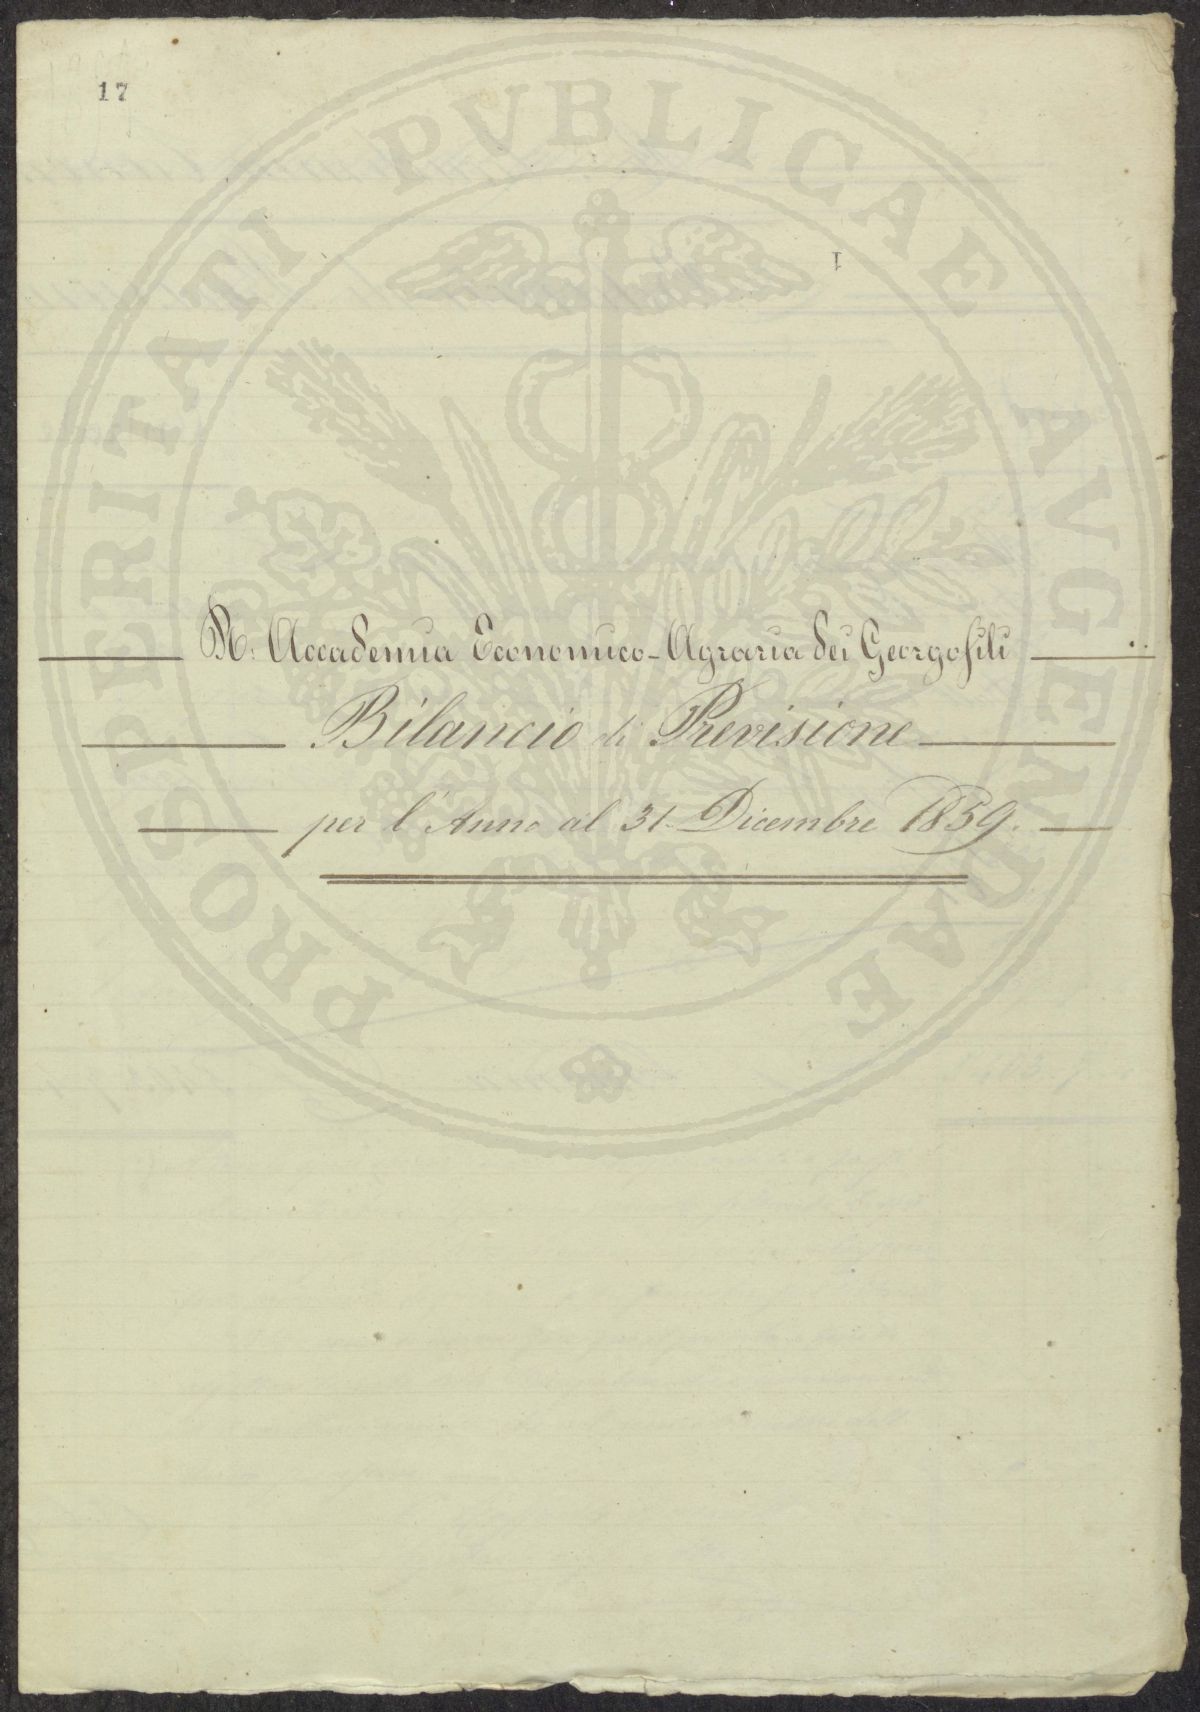 17
I
R. Accademia Economico-Agraria dei Georgofili
Bilancio di Previsione
per l'Anno al 31. Dicembre 1859.
PROSPERITATI PVBLICAE AVGENDAE